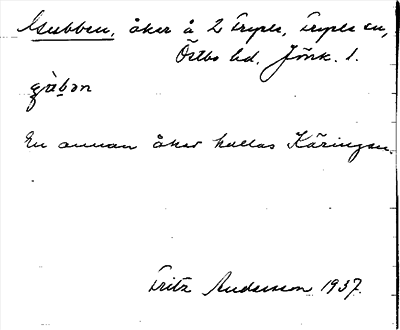 Gubben, åker å 2 Fryele, Fryele sn,
Östbo hd, Jönk. l.
gu̇bən
En annan åker kallas Käringen.
Fritz Andersson 1937.